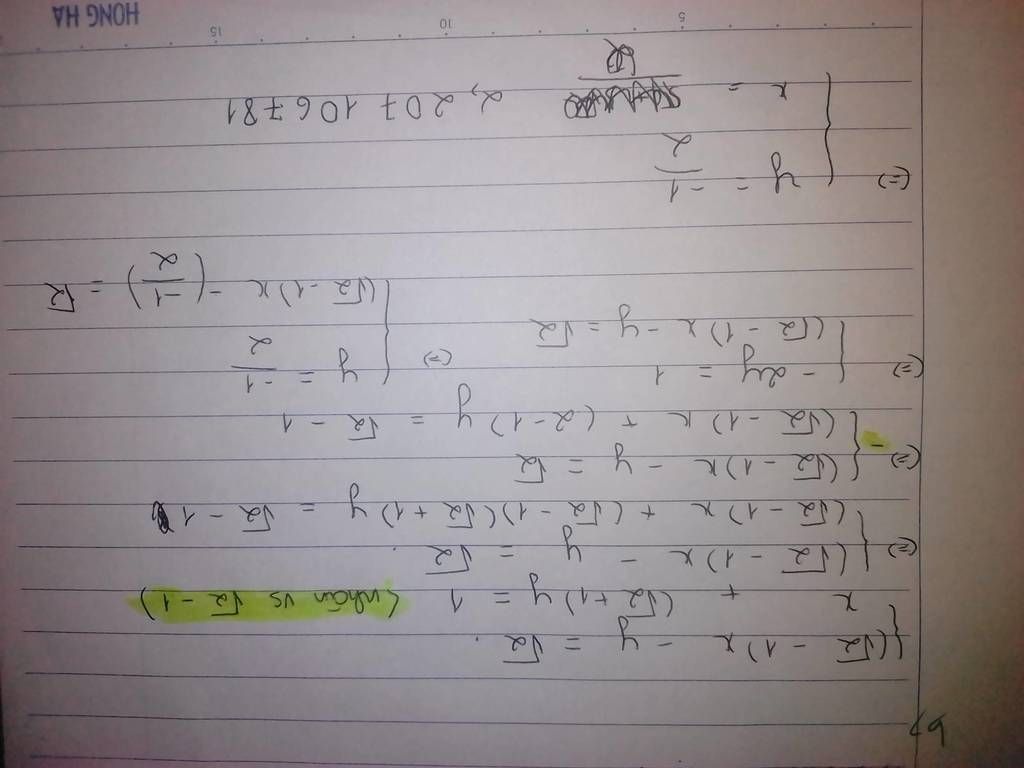 b)
{ (√2 - 1)x - y = √2.
x + (√2 + 1)y = 1 (nhân vs √2 - 1)
(=) { (√2 - 1)x - y = √2.
(√2 - 1)x + (√2 - 1)(√2 + 1)y = √2 - 1
(=) - { (√2 - 1)x - y = √2
(√2 - 1)x + (2 - 1)y = √2 - 1
(=) { -2y = 1 (=) { y = -1/2
(√2 - 1)x - y = √2 (√2 - 1)x - (-1/2) = √2
(=) { y = -1/2
x = 2,207 106 781
5 10 15
HONG HA